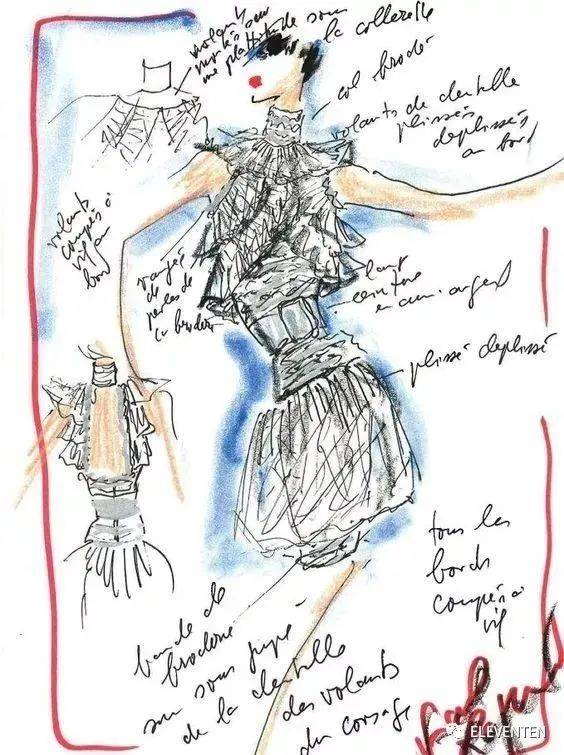 volants
montés sur
une platitude sous
la collerette
col brodé
volants de dentelle
plissés
deplissés
au bord
volants
coupés à
vif au
bord
rangs
de
perles de
broderie
haut
ceinture
en cuir argent
plissé deplissé
tous les
bords
coupés à
vif
bande de
broderie
sur sous jupe
de la dentelle
des volants
du corsage
ELEVENTEN